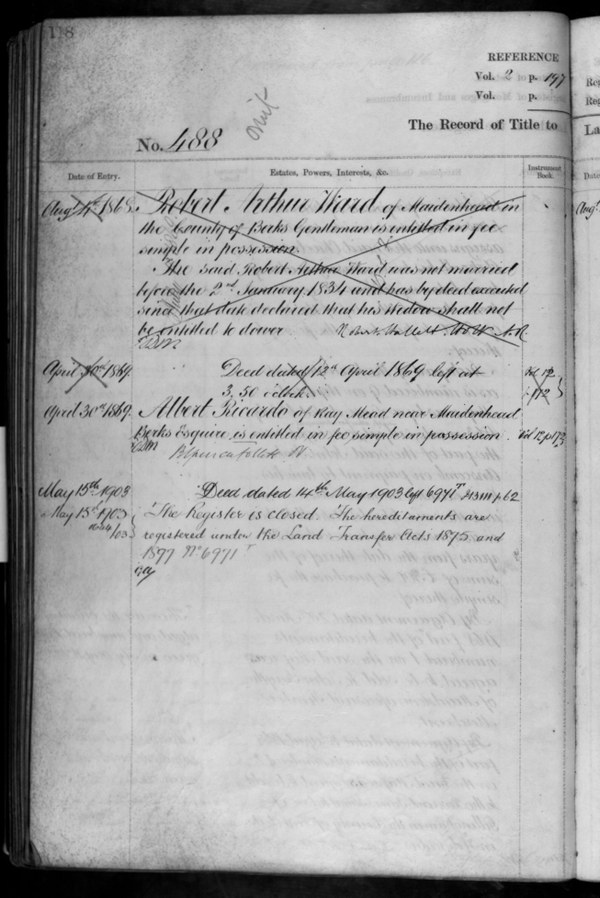 118
REFERENCE
Vol. 2 p. 197
Vol. p.
The Record of Title to
No. 488
Omit
Date of Entry.
Estates, Powers, Interests, &c.
Instrument Book.
Augt 4th 1863. Robert Arthur Ward of Maidenhead in
the County of Berks Gentleman is entitled in fee
simple in possession.
The said Robert Arthur Ward was not married
before the 2nd January 1834 and has by deed executed
since that date declared that his Widow shall not
be entitled to dower.
April 30th 1869. Deed dated 12th April 1869 left at
3.50 o'clock
Vol 12
p. 172
April 30th 1869. Albert Ricardo of Ray Mead near Maidenhead
Berks Esquire is entitled in fee simple in possession. Vol 12 p 173
May 15th 1903 Deed dated 14th May 1903 left 6971T
May 15th 1903 The Register is closed. The hereditaments are
registered under the Land Transfer Acts 1875 and
1897 No 6971T